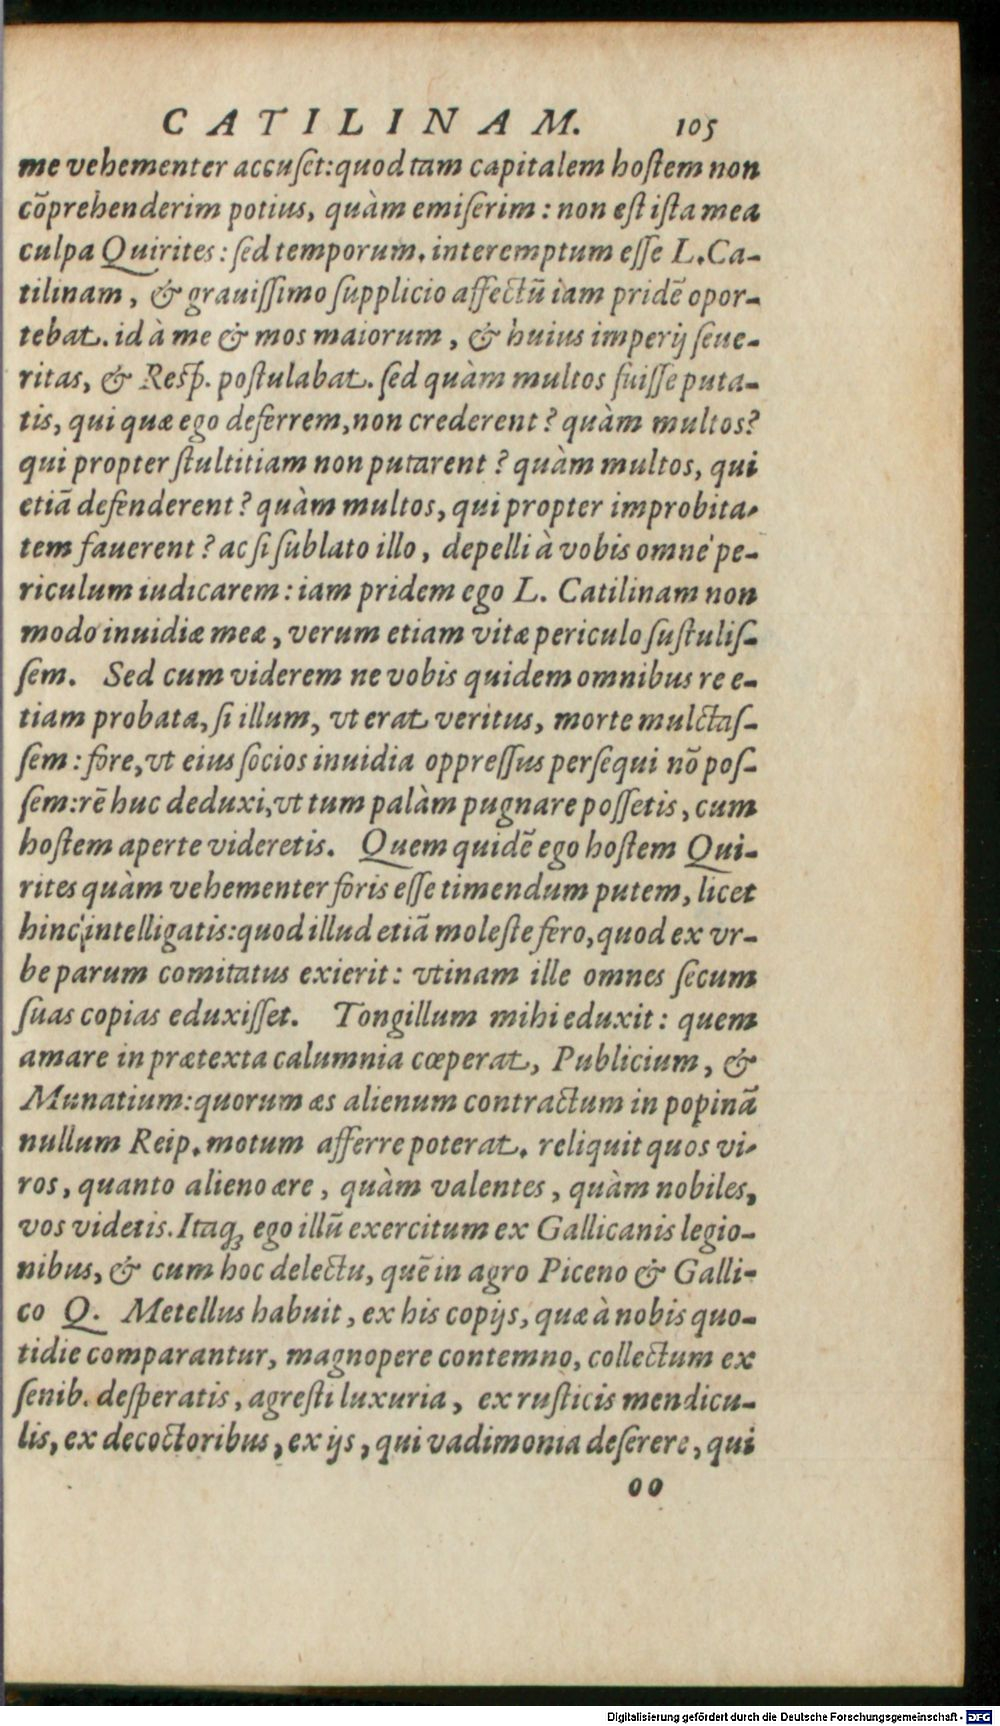 CATILINAM. 105
me vehementer accuſet: quod tam capitalem hoſtem non
cõprehenderim potius, quàm emiſerim: non eſt iſta mea
culpa Quirites: ſed temporum. interemptum eſſe L. Ca-
tilinam, & grauiſſimo ſupplicio affectũ iam pridẽ opor-
tebat. id à me & mos maiorum, & huius imperij ſeue-
ritas, & Reſp. poſtulabat. ſed quàm multos fuiſſe puta-
tis, qui quæ ego deferrem, non crederent? quàm multos?
qui propter ſtultitiam non putarent? quàm multos, qui
etiã defenderent? quàm multos, qui propter improbita-
tem fauerent? ac ſi ſublato illo, depelli à vobis omne pe-
riculum iudicarem: iam pridem ego L. Catilinam non
modo inuidiæ meæ, verum etiam vitæ periculo ſuſtuliſ-
ſem. Sed cum viderem ne vobis quidem omnibus re e-
tiam probata, ſi illum, vt erat veritus, morte mulctaſ-
ſem: fore, vt eius ſocios inuidia oppreſſus perſequi nõ poſ-
ſem: rẽ huc deduxi, vt tum palàm pugnare poſſetis, cum
hoſtem aperte videretis. Quem quidẽ ego hoſtem Qui-
rites quàm vehementer foris eſſe timendum putem, licet
hinc intelligatis: quod illud etiã moleſte fero, quod ex vr-
be parum comitatus exierit: vtinam ille omnes ſecum
ſuas copias eduxiſſet. Tongillum mihi eduxit: quem
amare in prætexta calumnia cœperat, Publicium, &
Munatium: quorum æs alienum contractum in popinã
nullum Reip. motum afferre poterat. reliquit quos vi-
ros, quanto alieno ære, quàm valentes, quàm nobiles,
vos videtis. Itaq; ego illũ exercitum ex Gallicanis legio-
nibus, & cum hoc delectu, quẽ in agro Piceno & Galli-
co Q. Metellus habuit, ex his copijs, quæ à nobis quo-
tidie comparantur, magnopere contemno, collectum ex
ſenib. deſperatis, agreſti luxuria, ex ruſticis mendicu-
lis, ex decoctoribus, ex ijs, qui vadimonia deſerere, qui
oo
Digitalisierung gefördert durch die Deutsche Forschungsgemeinschaft - DFG